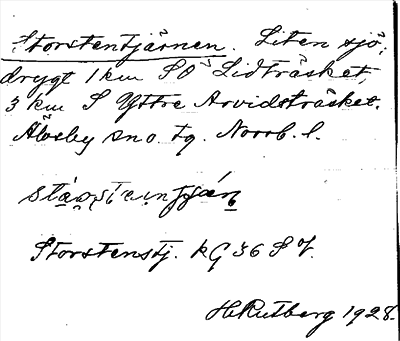 Storstentjärnen. Liten sjö,
drygt 1 km SO Lidträsket,
3 km S Yttre Arvidsträsket.
Älvsby sn o tg. Norrb. l.
Storstenstj. kG 36 S V.
H Rutberg 1928.